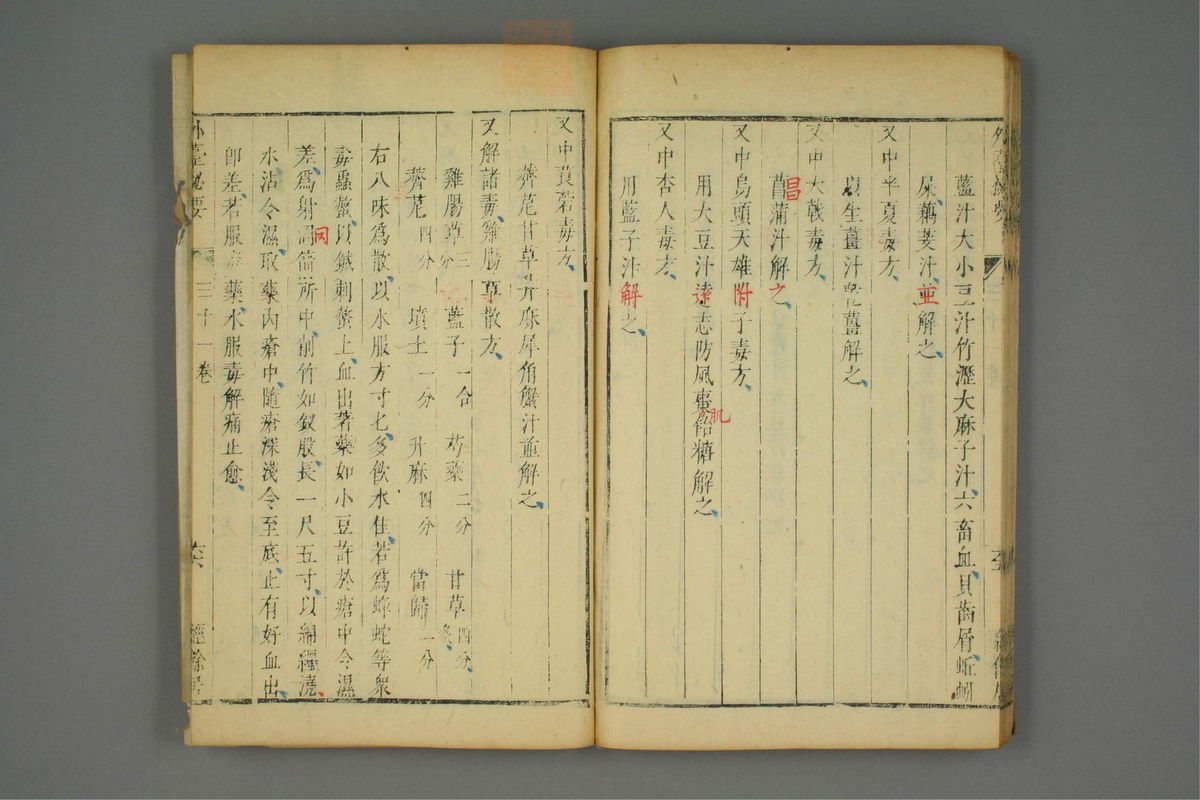 藍汁大小豆汁竹瀝大麻子汁六畜血貝齒屑蚯蚓
屎藕芰汁並解之
又中半夏毒方
以生薑汁乾薑解之
又中大戟毒方
菖蒲汁解之
又中烏頭天雄附子毒方
用大豆汁遠志防風棗飴糖解之
又中杏人毒方
用藍子汁解之
又中莨菪毒方
薺苨甘草升麻犀角蟹汁並解之
又解諸毒雞腸草散方
雞腸草三分 藍子一合 芍藥二分 甘草四分炙
薺苨四分 墳土一分 升麻四分 當歸一分
右八味為散以水服方寸匕多飲水佳若為蜂蛇等眾
毒蟲螫以鍼刺螫上血出著藥如小豆許於瘡中令濕
差為射罔箭所中削竹如釵股長一尺五寸以綿纏澆
水沾令濕取藥內瘡中隨瘡深淺令至底止有好血出
即差若服藥水服毒解痛止愈
外臺秘要 三十一卷 經餘居